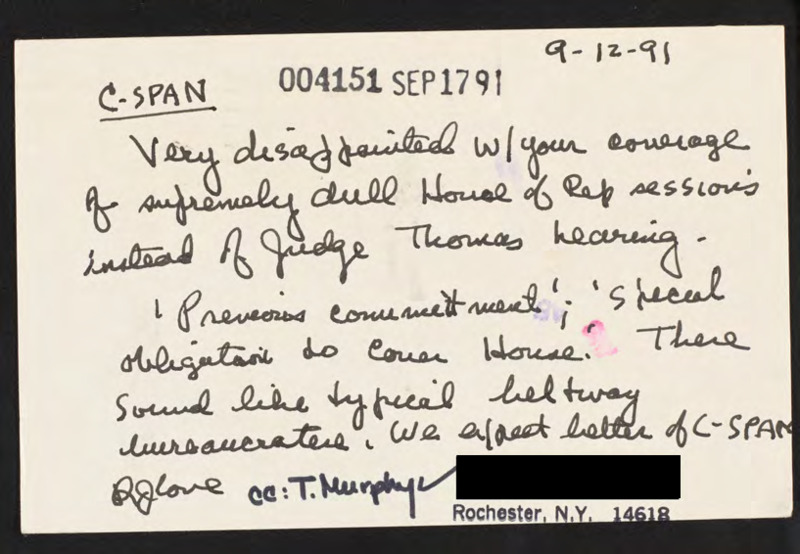 9-12-91
C-SPAN
004151 SEP 17 91
Very disappointed w/your coverage
of supremely dull House of Rep sessions
instead of Judge Thomas hearing.
'Previous committment'; 'special
obligation to cover House.' These
sound like typical beltway
bureaucratese. We expect better of C-SPAN
cc: T. Murphy ✓
Rochester, N.Y. 14618